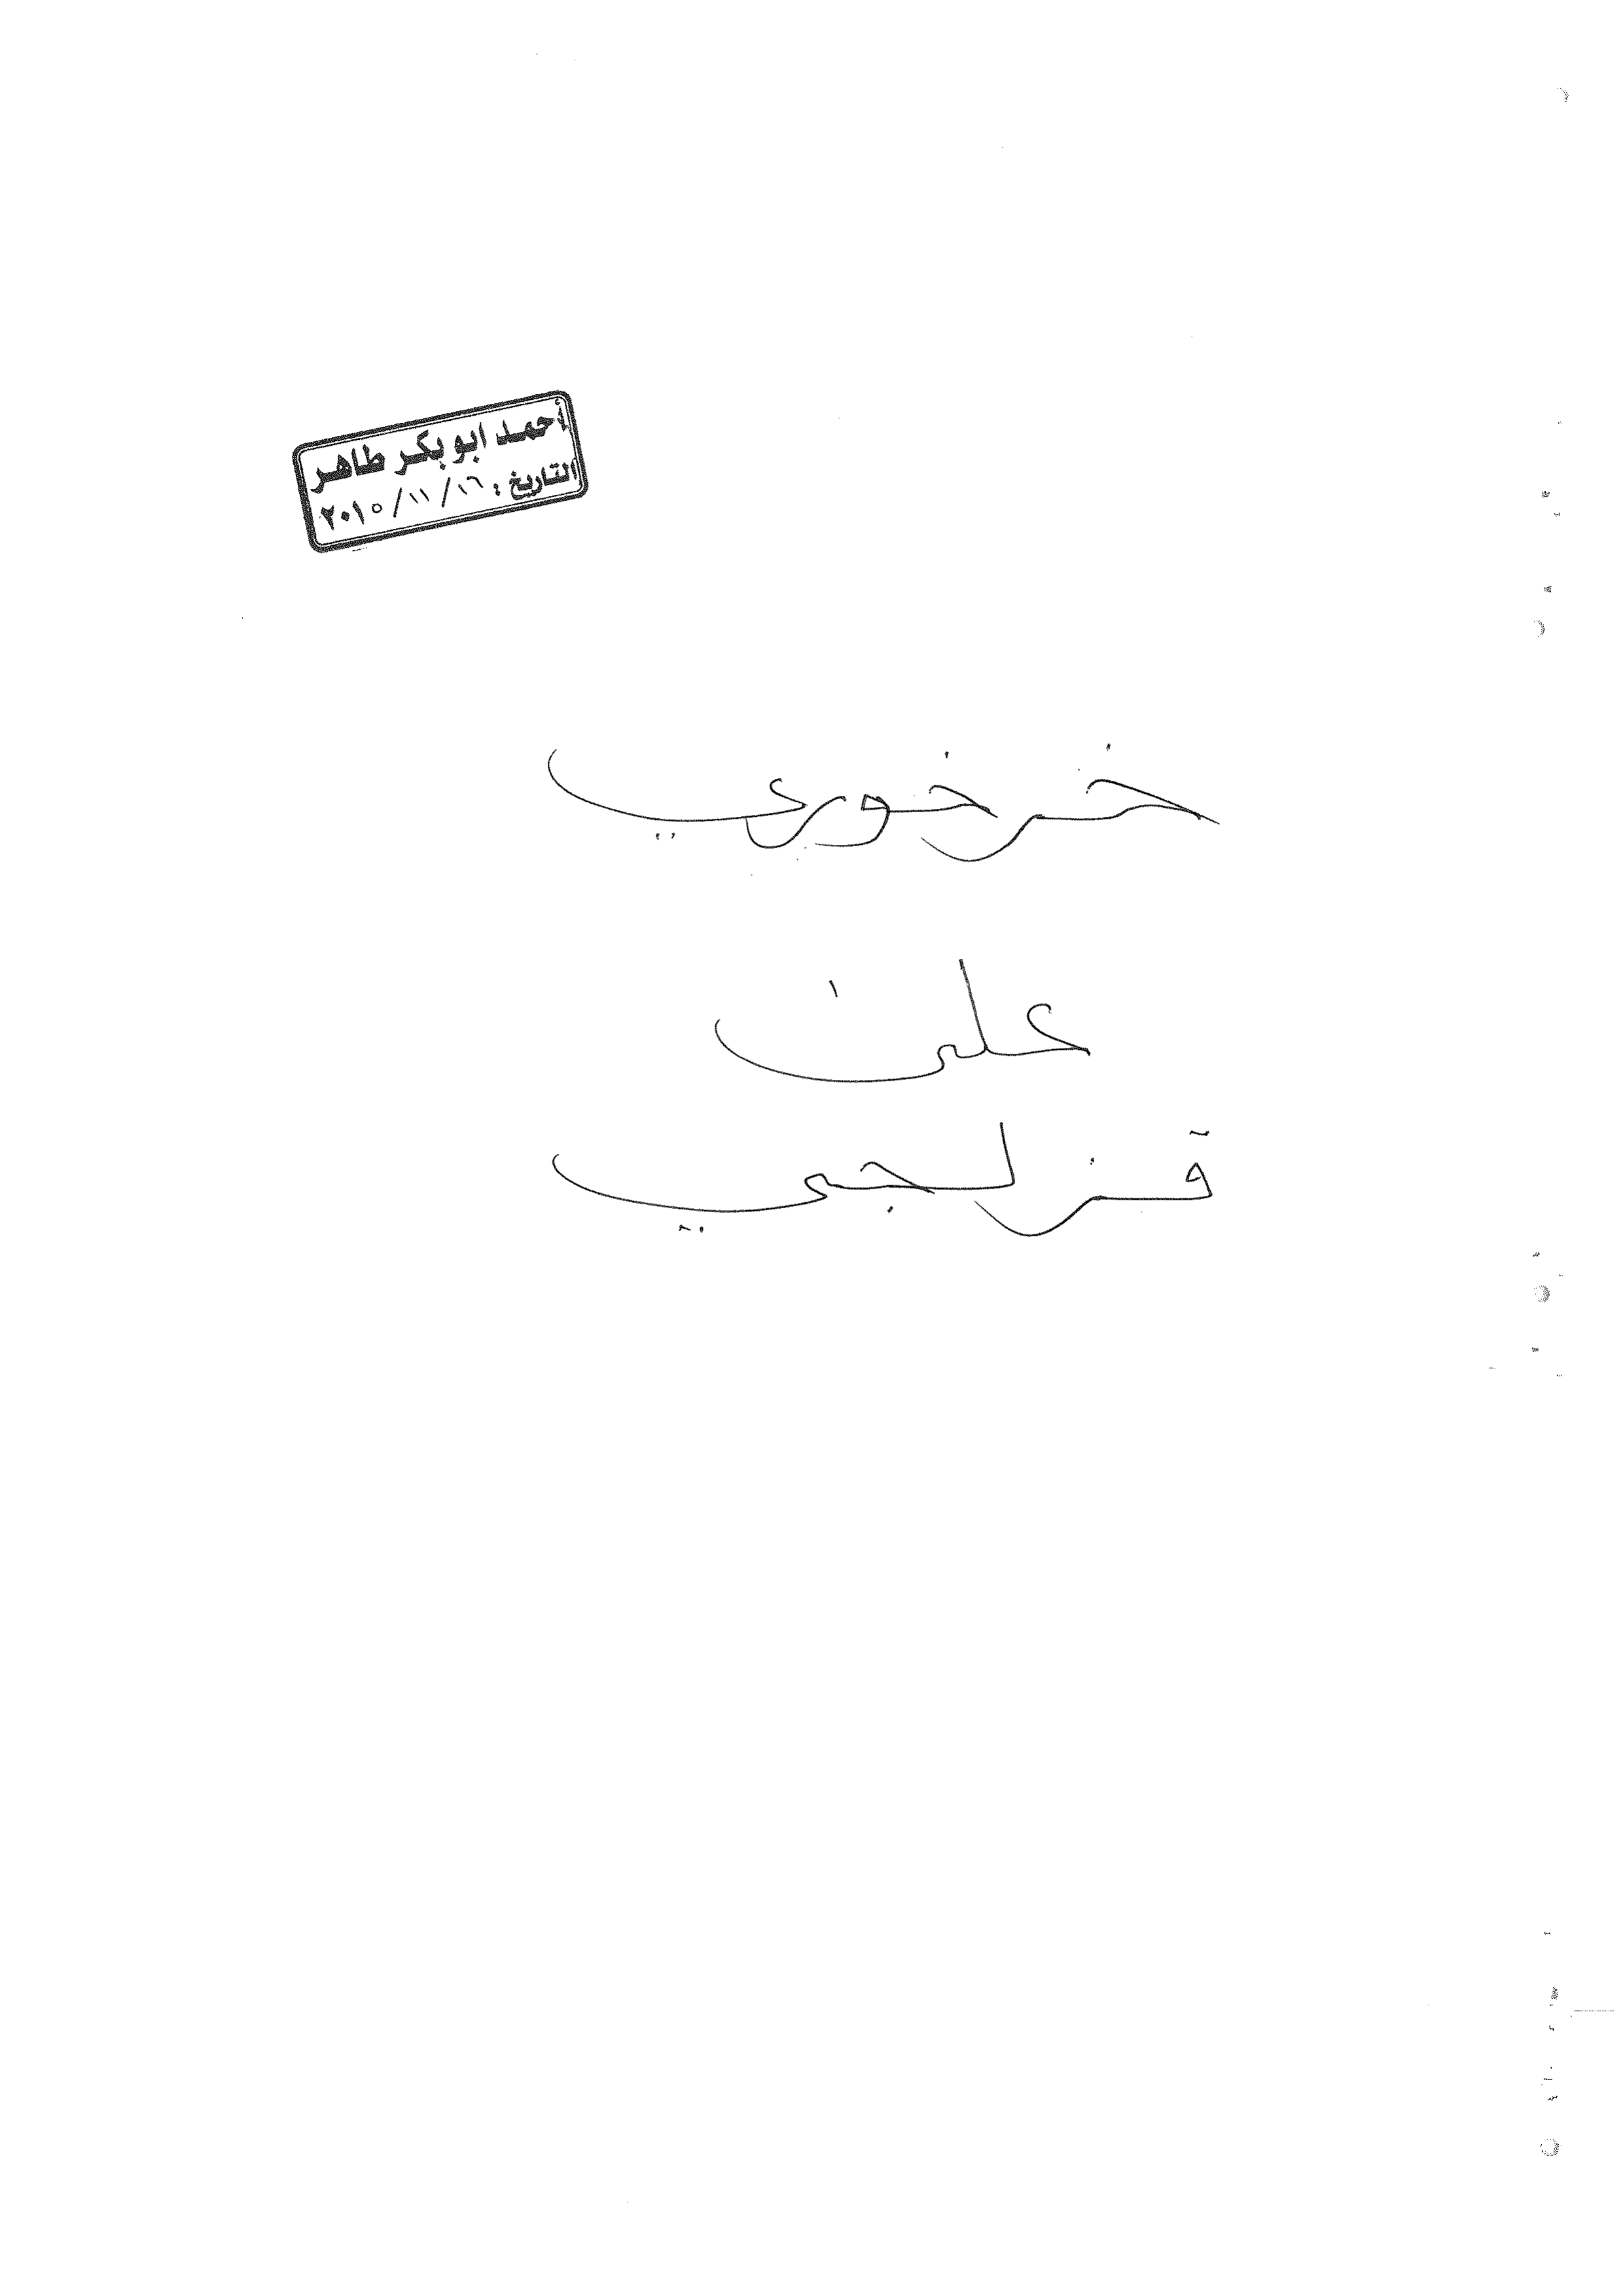 أحمد ابو بكر طاهر
التاريخ : ١٦ / ١١ / ٢٠١٥
خرخوري
علیٰ
قزلجي